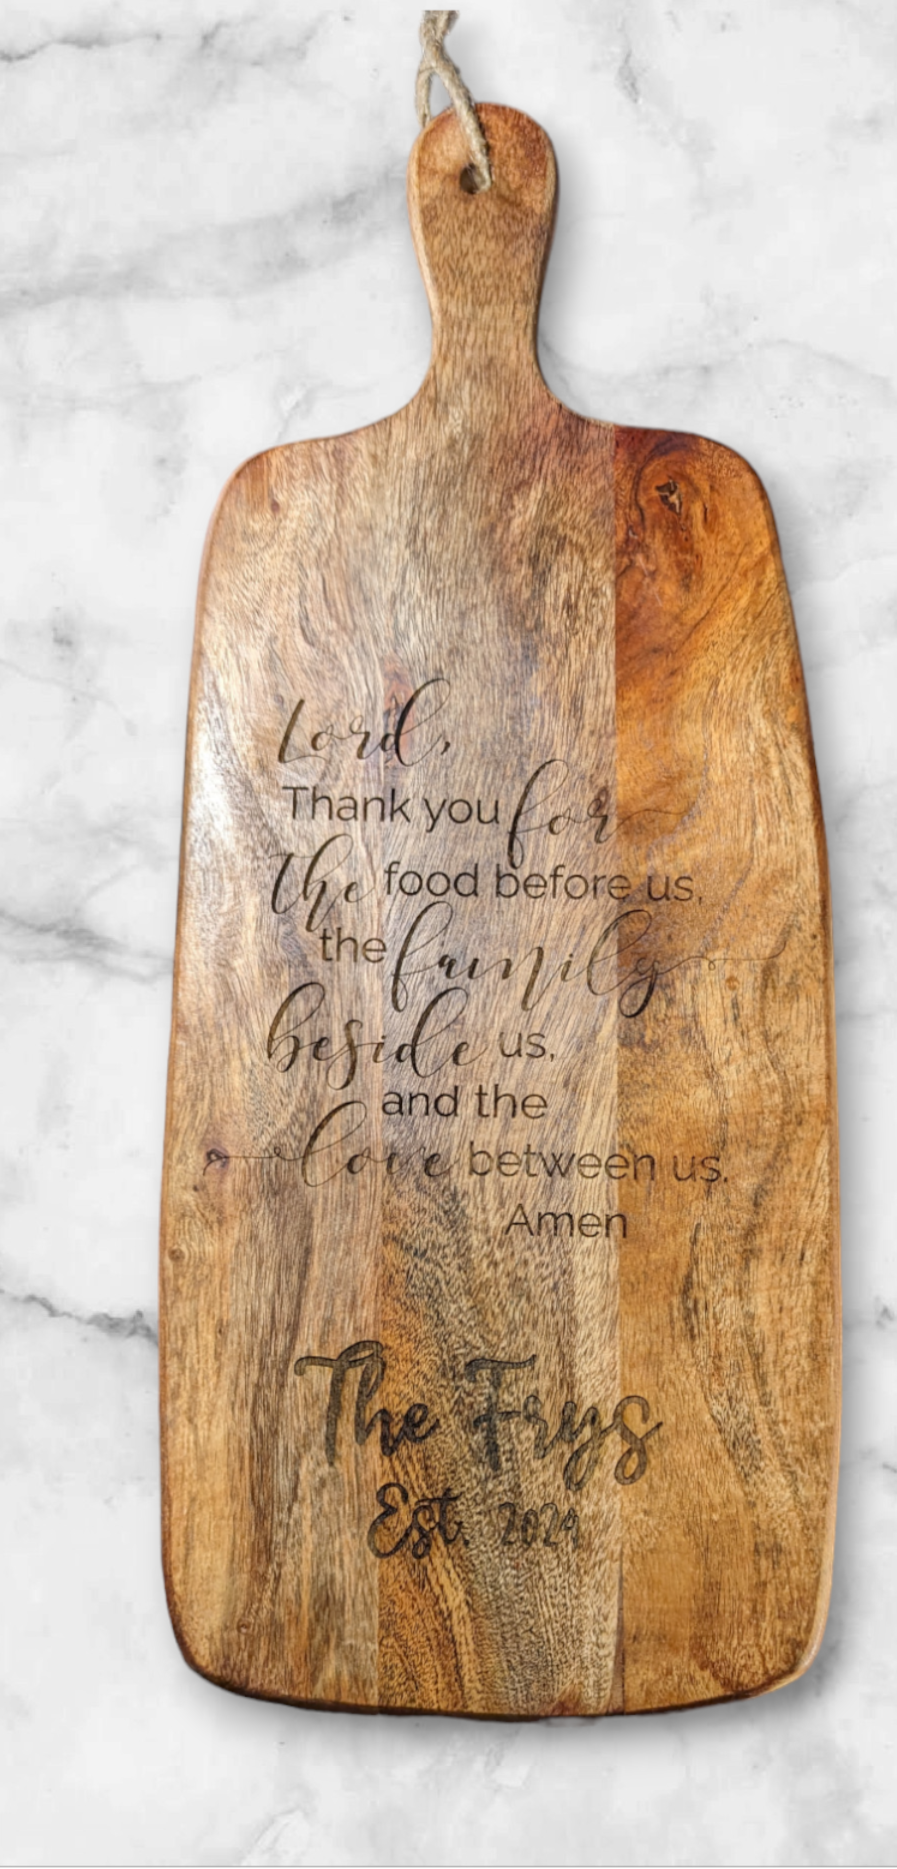 Lord,
Thank you for
the food before us,
the family
beside us,
and the
love between us.
Amen
The Frys
Est. 2024